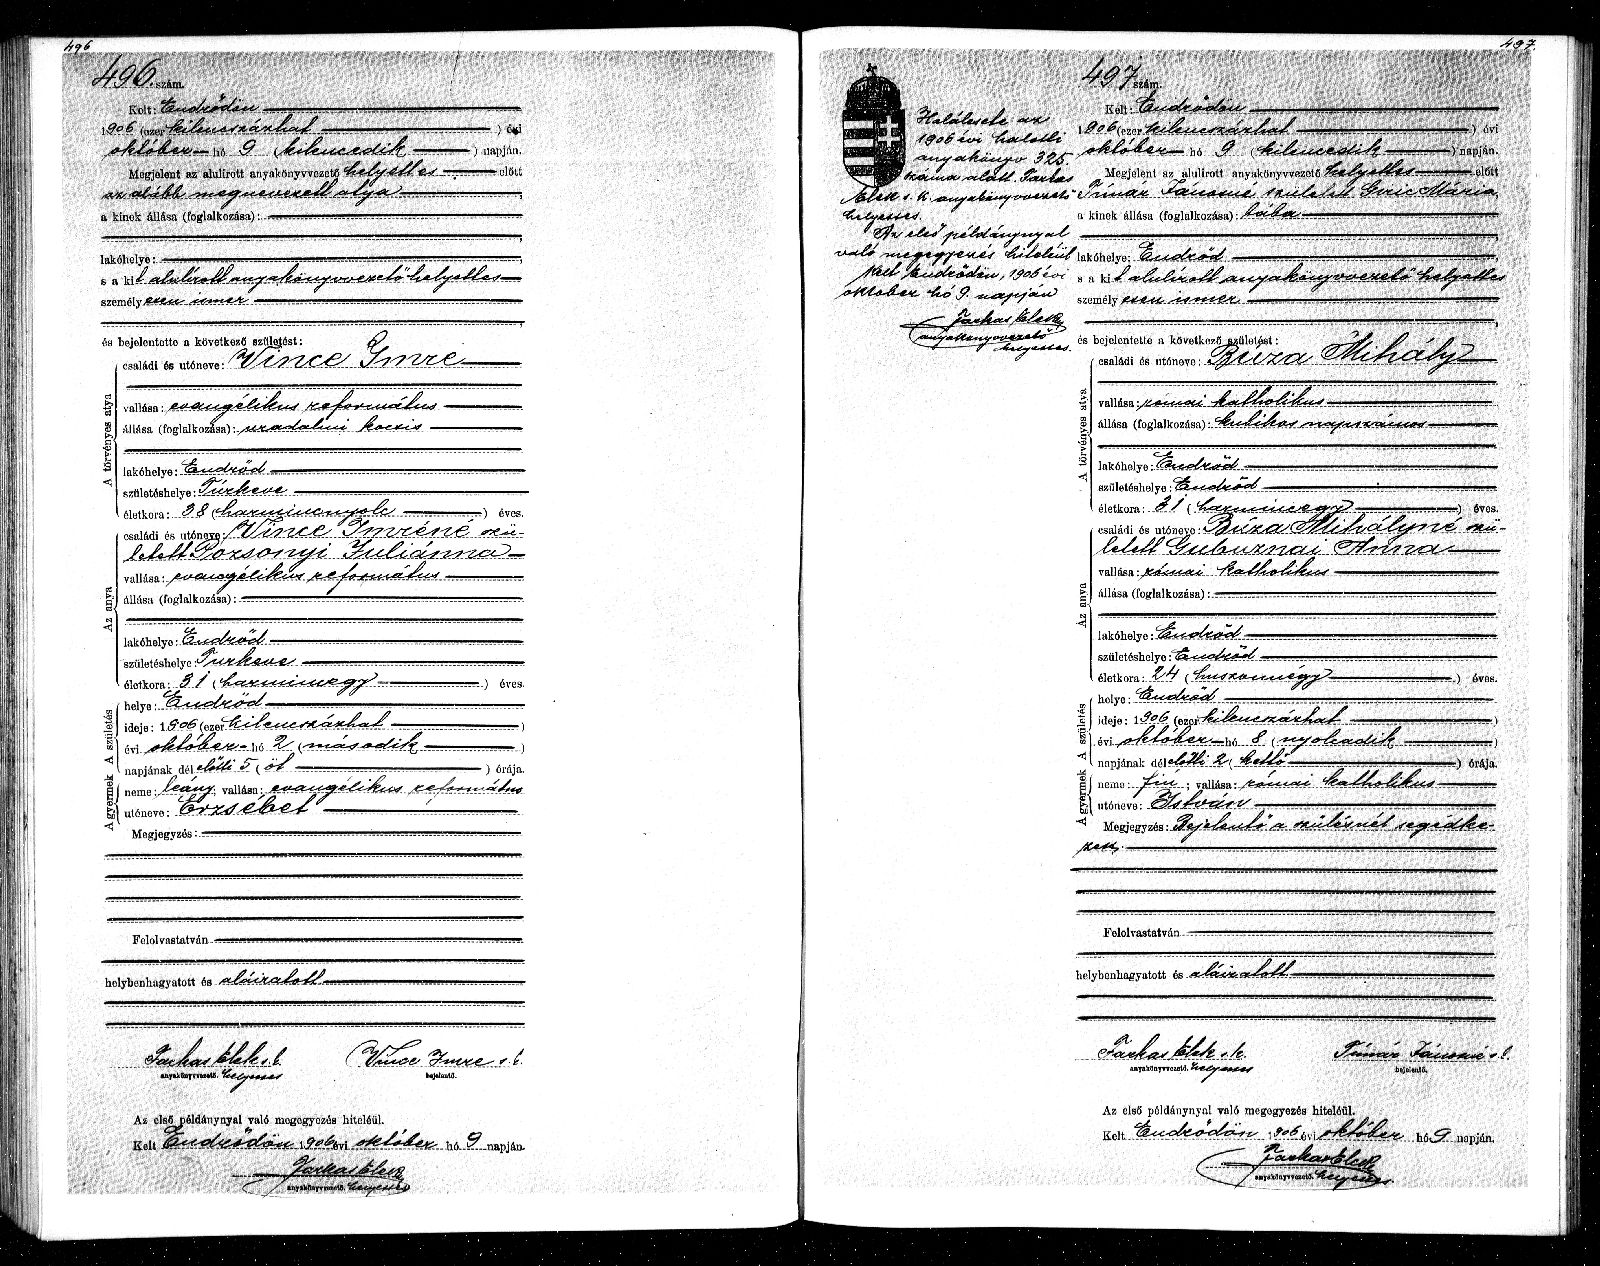 496
496. szám.
Kelt: Endrődön
1906 (ezer kilencszázhat ) évi
október hó 9 (kilencedik ) napján.
Megjelent az alulirott anyakönyvvezető helyettes előtt
az alább megnevezett atya
a kinek állása (foglalkozása):
lakóhelye:
s a kit alulirott anyakönyvvezető helyettes
személyesen ismer
és bejelentette a következő születést:
A törvényes atya
családi és utóneve: Vince Imre
vallása: evangélikus református
állása (foglalkozása): uradalmi kocsis
lakóhelye: Endrőd
születéshelye: Túrkeve
életkora: 38 (harmincnyolc ) éves.
Az anya
családi és utóneve: Vince Imréné szü-
letett Pozsonyi Juliánna
vallása: evangélikus református
állása (foglalkozása):
lakóhelye: Endrőd
születéshelye: Turkeve
életkora: 31 (harmincegy ) éves.
A születés
helye: Endrőd
ideje: 1906 (ezer kilencszázhat )
évi október hó 2 (második )
napjának délelőtti 5 (öt ) órája.
A gyermek
neme: leány, vallása: evangélikus református
utóneve: Erzsébet
Megjegyzés:
Felolvastatván
helybenhagyatott és aláiratott
Farkas Elek s. k. Vince Imre s. k.
anyakönyvvezető. helyettes bejelentő.
Az első példánynyal való megegyezés hiteléül.
Kelt Endrődön 1906 évi október hó 9 napján.
Farkas Elek
anyakönyvvezető. helyettes
497.
Halálesete az
1906 évi halotti
anyakönyv 325.
száma alatt. Farkas
Elek s. k. anyakönyvvezető
helyettes.
Az első példánynyal
való megegyezés hiteléül
Kelt Endrődön, 1906 évi
október hó 9. napján
Farkas Elek
anyakönyvvezető
helyettes.
497 szám.
Kelt: Endrődön
1906 (ezer kilencszázhat ) évi
október hó 9 (kilencedik ) napján.
Megjelent az alulirott anyakönyvvezető helyettes előtt
Tímár Jánosné született Mária,
a kinek állása (foglalkozása): bába
lakóhelye: Endrőd
s a kit alulirott anyakönyvvezető helyettes
személyesen ismer
és bejelentette a következő születést:
A törvényes atya
családi és utóneve: Búza Mihály
vallása: római katholikus
állása (foglalkozása): kubikos napszámos
lakóhelye: Endrőd
születéshelye: Endrőd
életkora: 31 (harmincegy ) éves.
Az anya
családi és utóneve: Búza Mihályné szü-
letett Gubuznai Anna
vallása: római katholikus
állása (foglalkozása):
lakóhelye: Endrőd
születéshelye: Endrőd
életkora: 24 (huszonnégy ) éves.
A születés
helye: Endrőd
ideje: 1906 (ezer kilencszázhat )
évi október hó 8 (nyolcadik )
napjának délelőtti 2 (kettő ) órája.
A gyermek
neme: fiú; vallása: római katholikus
utóneve: István
Megjegyzés: Bejelentő a szülésnél segédke-
zett.
Felolvastatván
helybenhagyatott és aláiratott
Farkas Elek s. k. Tímár Jánosné s. k.
anyakönyvvezető. helyettes bejelentő.
Az első példánynyal való megegyezés hiteléül.
Kelt Endrődön 1906 évi október hó 9 napján.
Farkas Elek
anyakönyvvezető. helyettes